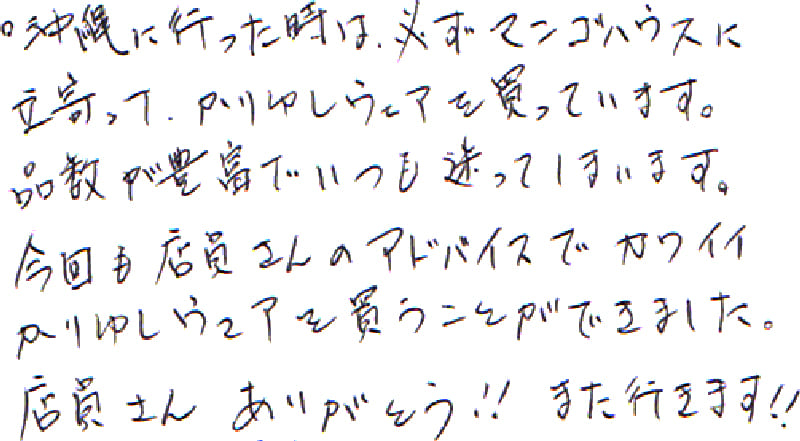 ○沖縄に行った時は、必ずマンゴハウスに
立寄って、かりゆしウェアを買っています。
品数が豊富でいつも迷ってしまいます。
今回も店員さんのアドバイスでカワイイ
かりゆしウェアを買うことができました。
店員さん ありがとう!! また行きます!!